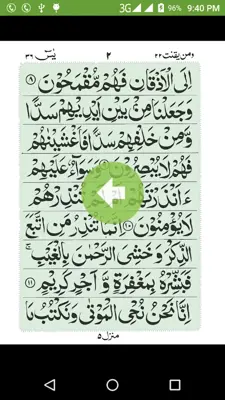 3G 96% 9:40 PM
ومن یقنت ۲۲ ۲ یٰسٓ ۳۶
اِلَی الْاَذْقَانِ فَهُمْ مُّقْمَحُوْنَ ۸
وَجَعَلْنَا مِنْۢ بَيْنِ اَيْدِيْهِمْ سَدًّا
وَّمِنْ خَلْفِهِمْ سَدًّا فَاَغْشَيْنٰهُمْ
فَهُمْ لَا يُبْصِرُوْنَ ۹ وَسَوَآءٌ عَلَيْهِمْ
ءَاَنْذَرْتَهُمْ تُنْذِرْهُمْ
لَا يُؤْمِنُوْنَ ۱۰ اِنَّمَا تُنْذِرُ مَنِ اتَّبَعَ
الذِّكْرَ وَخَشِیَ الرَّحْمٰنَ بِالْغَيْبِ ۚ
فَبَشِّرْهُ بِمَغْفِرَةٍ وَّ اَجْرٍ كَرِيْمٍ ۱۱
اِنَّا نَحْنُ نُحْیِ الْمَوْتٰى وَنَكْتُبُ مَا
منزل ۵